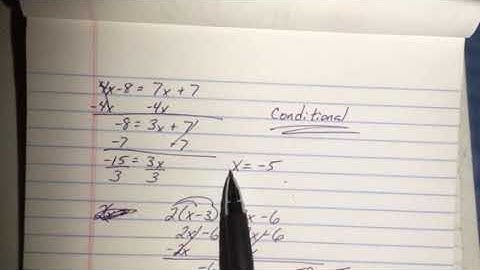 4x-8 = 7x+7
-4x -4x
-8 = 3x+7
-7 -7
-15 = 3x
3 3
x = -5
Conditional
2(x-3) x-6
2x-6 x-6
-2x
-6